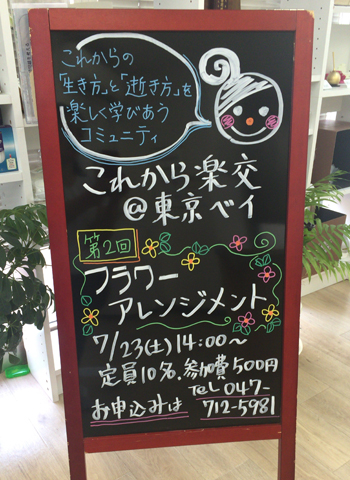 これからの
「生き方」と「逝き方」を
楽しく学びあう
コミュニティ
これから楽交
@東京ベイ
第2回
フラワー
アレンジメント
7/23(土)14:00〜
定員10名.参加費500円
お申込みは Tel 047-
712-5981